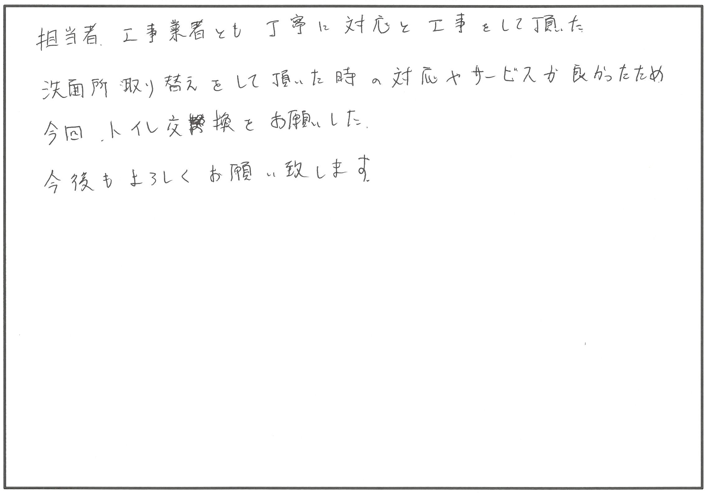 担当者、工事業者とも 丁寧に 対応と 工事をして頂いた
洗面所 取り替えをして頂いた時の対応やサービスが良かったため
今回、トイレ交換をお願いした。
今後もよろしくお願い致します。